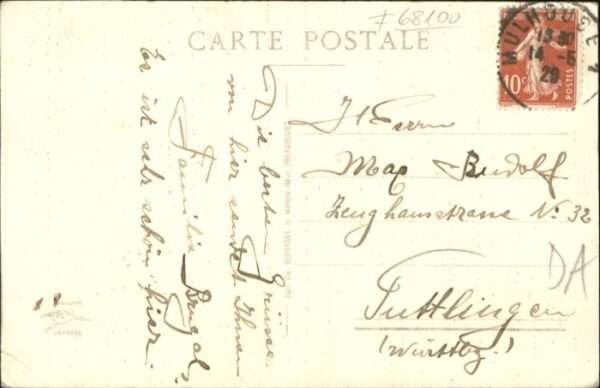 F 68100
CARTE POSTALE
MULHOUSE
14 -5
29
10c
POSTES
Die besten Grüsse
von hier sendet Ihnen
Familie
Es ist sehr schön hier.
Herrn
Max Rudolf
Zeughausstrasse No 32
Tuttlingen
(Württbg.)
DA